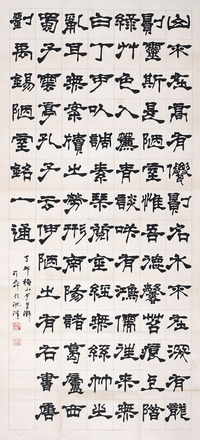 山不在高有僊則名水不在深有龍
則靈斯是陋室惟吾德馨苔痕上階
綠艸色入簾青談笑有鴻儒往來無
白丁可以調素琴閱金經無絲竹之
亂耳無案牘之勞形南陽諸葛廬西
蜀子雲亭孔子云何陋之有右書唐
劉禹錫陋室銘一通
丁卯